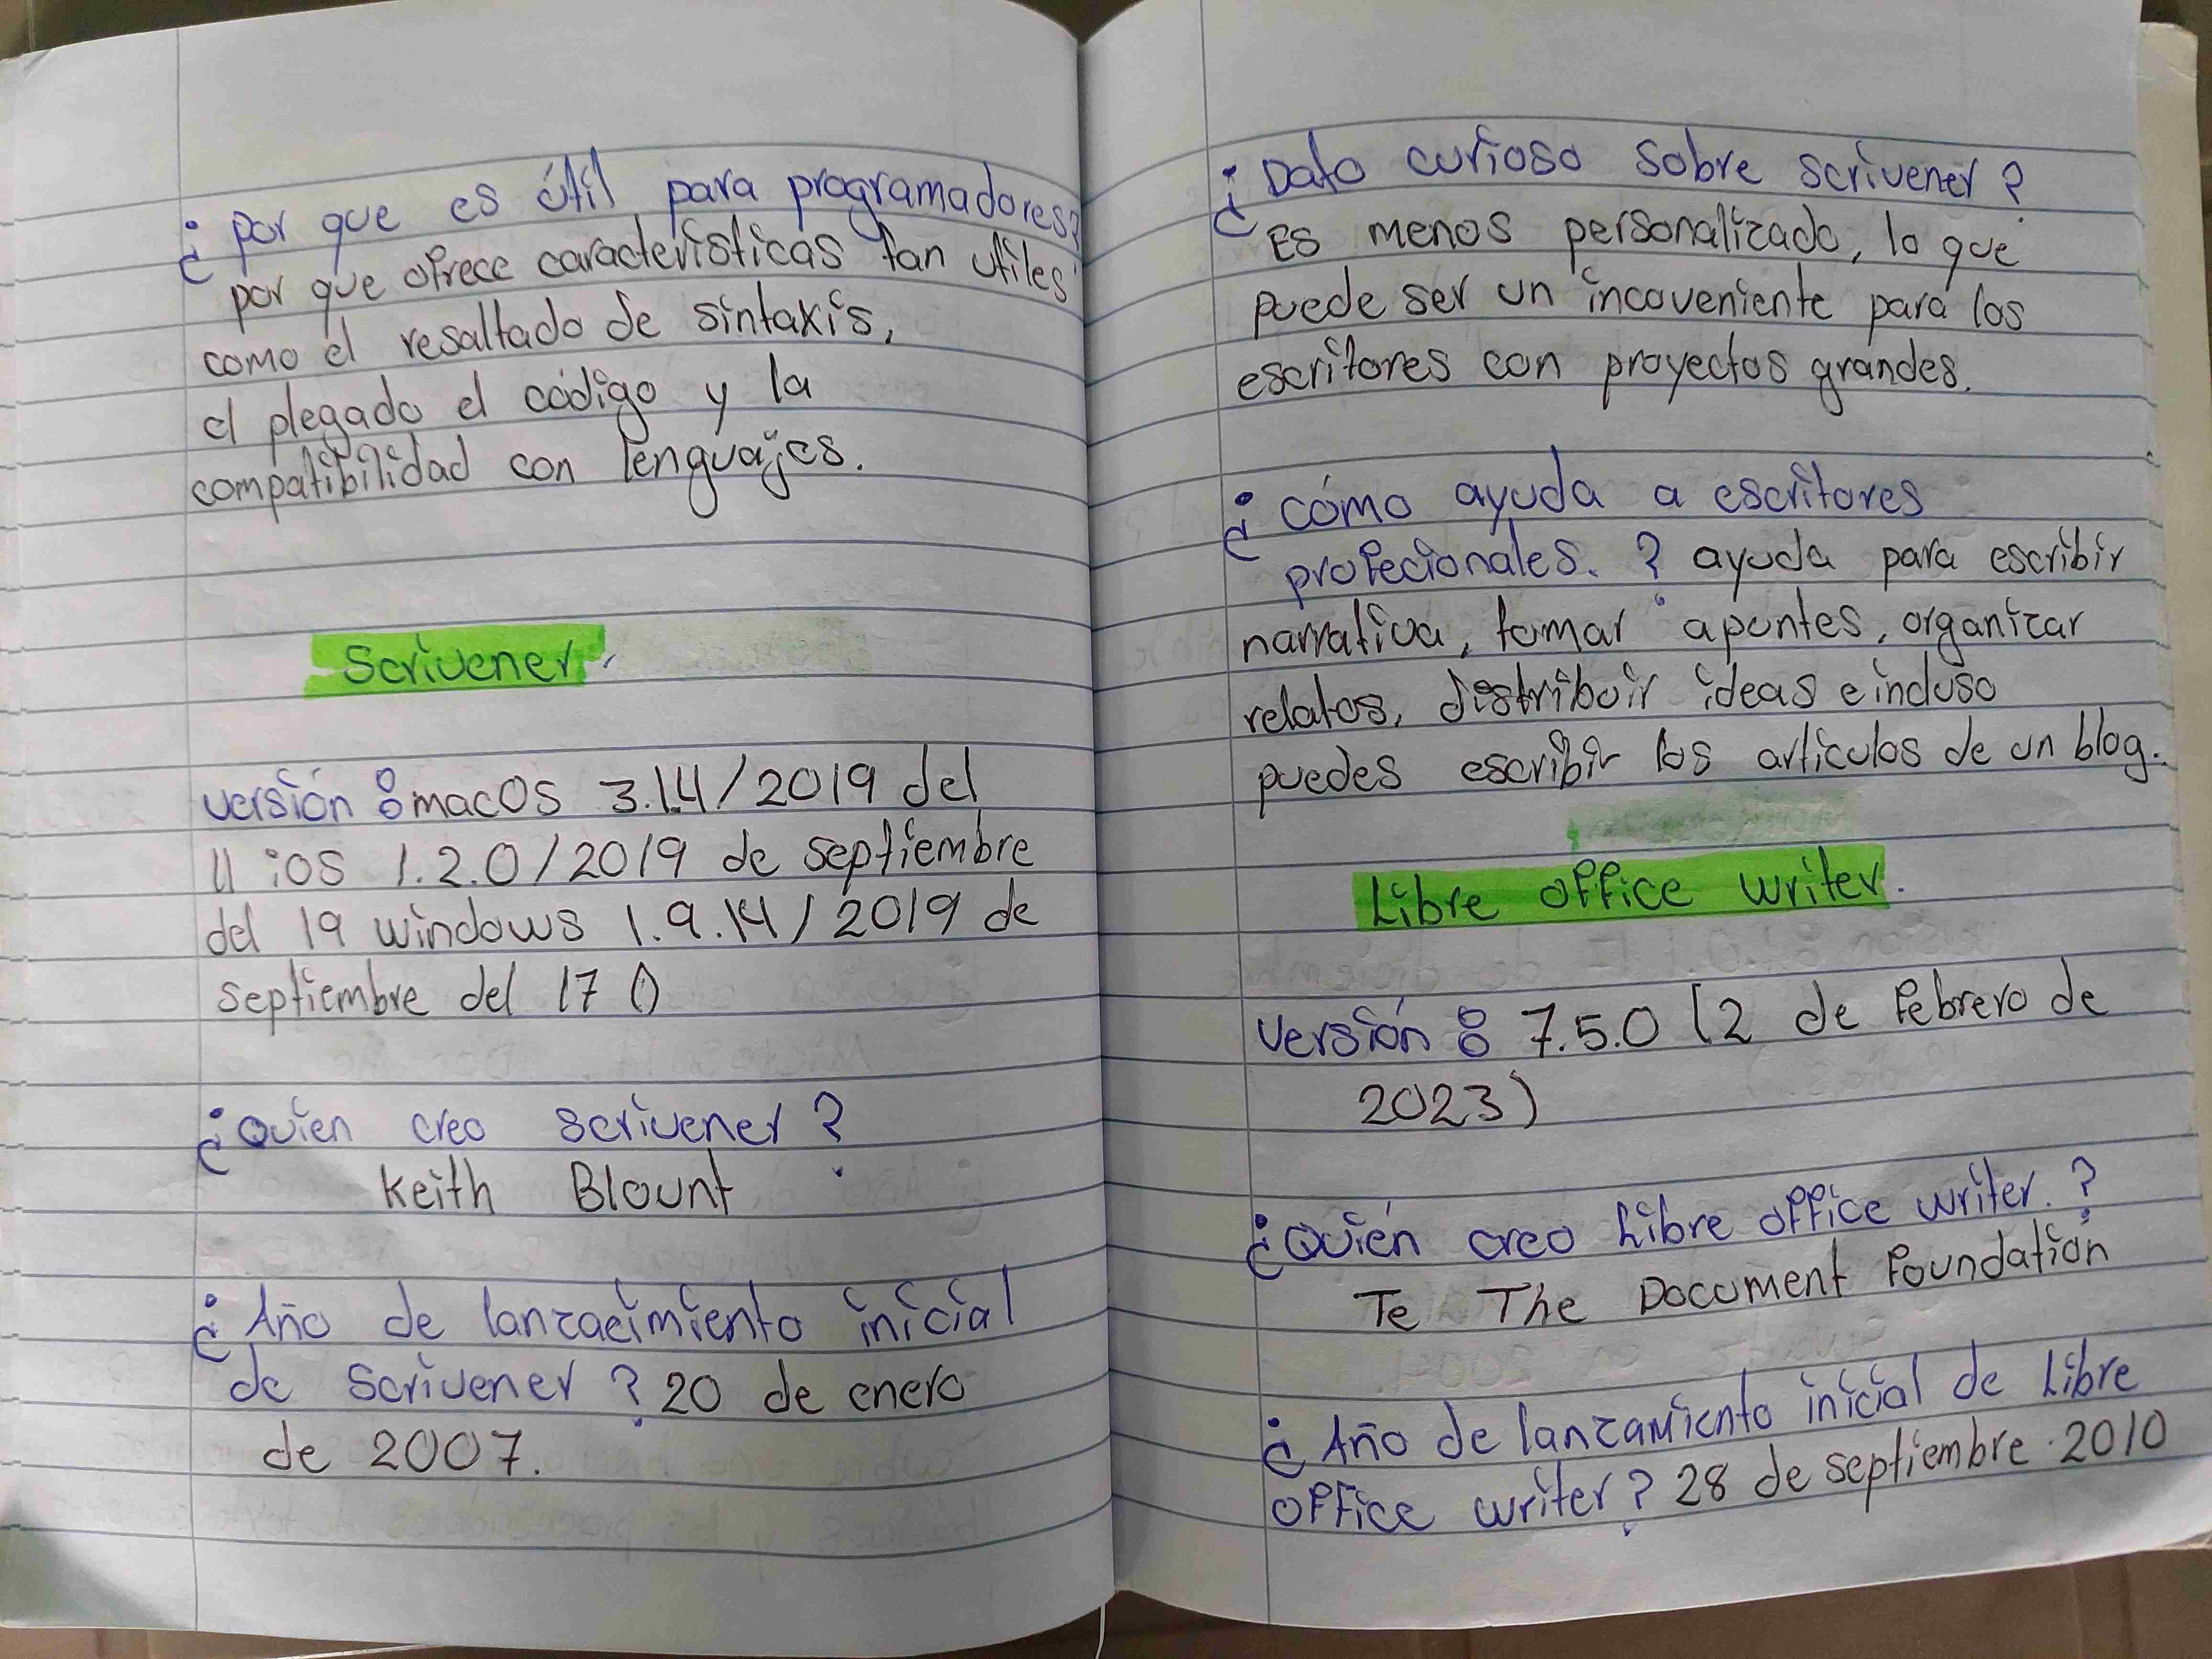 ¿por que es útil para programadores?
por que ofrece características tan utiles
como el resaltado de sintaxis,
el plegado el código y la
compatibilidad con lenguajes.
Scrivener
versión : macOS 3.1.4/2019 del
11 ios 1.2.0/2019 de septiembre
del 19 windows 1.9.14/2019 de
septiembre del 17 ()
¿Quien creo scrivener?
Keith Blount
¿Año de lanzacimiento inicial
de scrivener? 20 de enero
de 2007.
¿Dato curioso sobre scrivener?
Es menos personalizado, lo que
puede ser un incoveniente para los
escritores con proyectos grandes.
¿cómo ayuda a escritores
profecionales.? ayuda para escribir
narrativa, tomar apuntes, organizar
relatos, distribuir ideas e incluso
puedes escribir los artículos de un blog.
Libre office writer.
versión : 7.5.0 (2 de febrero de
2023)
¿Quién creo Libre office writer.?
Te The Document Foundation
¿Año de lanzamiento inicial de Libre
office writer? 28 de septiembre 2010